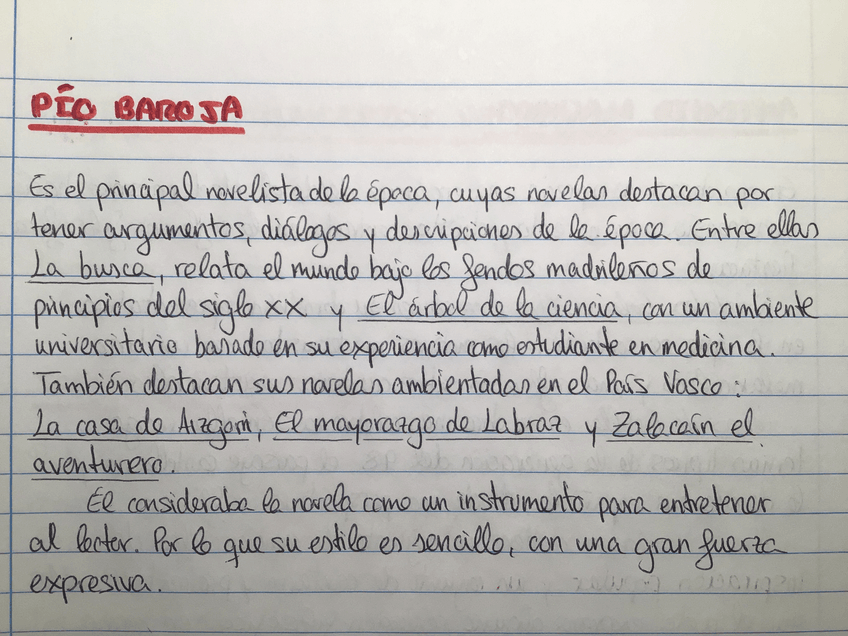 PÍO BAROJA
Es el principal novelista de la época, cuyas novelas destacan por
tener argumentos, diálogos y descripciones de la época. Entre ellas
La busca, relata el mundo bajo los fondos madrileños de
principios del siglo XX y El árbol de la ciencia, con un ambiente
universitario basado en su experiencia como estudiante en medicina.
También destacan sus novelas ambientadas en el País Vasco:
La casa de Aizgorri, El mayorazgo de Labraz y Zalacaín el
aventurero.
El consideraba la novela como un instrumento para entretener
al lector. Por lo que su estilo es sencillo, con una gran fuerza
expresiva.